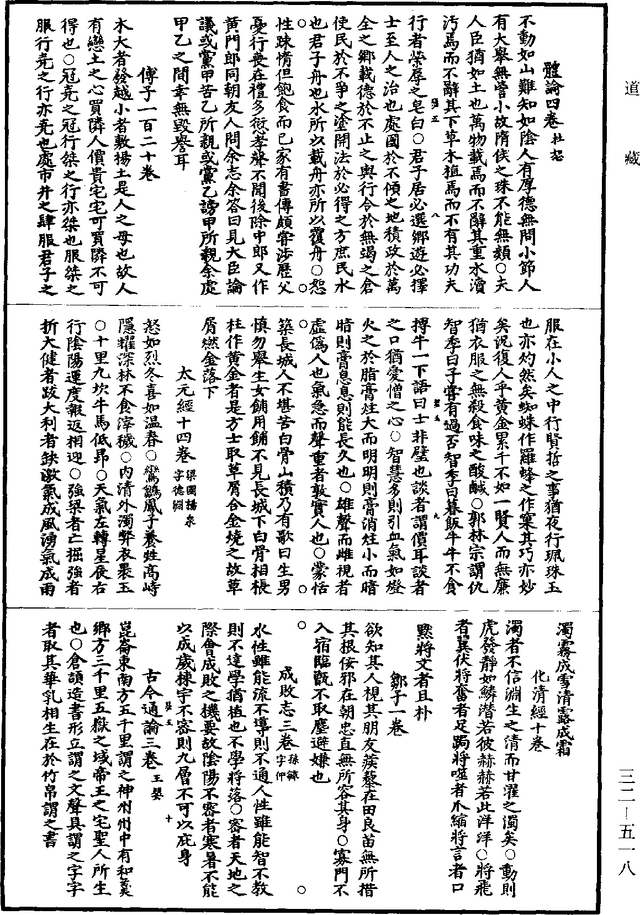 道藏
體論四卷 杜恕
不動如山難知如陰人有厚德無問小節人
有大舉無訾小故隋侯之珠不能無纇○夫
人臣猶如土也萬物載焉而不辭其重水瀆
汚焉而不辭其下草木植焉而不有其功夫
行者榮辱之皂白○君子居必選鄉遊必擇
士至人之治也處國於不傾之地積政於萬
全之鄉載德於不止之輿行令於無竭之倉
使民於不爭之塗開法於必得之方庶民水
也君子舟也水所以載舟亦所以覆舟○恕
性踈惰但飽食而已家有書傳頗嘗涉歷父
憂行喪在禮多愆孝聲不聞後除中郎又作
黄門郎同朝友人問余志余荅曰見大臣論
議或黨甲苦乙所親或黨乙謗甲所親余處
甲乙之間幸無毀譽耳
傅子一百二十卷
水大者發越小者敷揚土是人之母也故人
有戀土之心買隣人價貴宅宅可買隣不可
得也○冠堯之冠行桀之行亦桀也服桀之
服行堯之行亦堯也處市井之肆服君子之
服在小人之中行賢哲之事猶夜行珮珠玉
也亦灼然矣蜘蛛作羅蜂之作窠其巧亦妙
矣況復人乎黄金累千不如一賢人而無廉
猶衣服之無殺食味之酸鹹○郭林宗謂仇
智季曰子嘗有過否智季曰暮飯牛牛不食
搏牛一下語曰士非璧也談者謂價耳談者
之口猶愛憎之心○智慧多則引血氣如燈
火之於脂膏炷大而明明則膏消炷小而暗
暗則膏息息則能長久也○雄聲而雌視者
虛偽人也氣急而聲重者敦實人也○蒙恬
築長城人不堪苦白骨山積乃有歌曰生男
慎勿舉生女餔用餔不見長城下白骨相棖
柱作黄金者是方士取草屑合金燒之故草
屑燃金落下
太元經十四卷 梁國揚泉字德淵
怒如烈冬喜如温春○鸞鷂鳳子養姓高峙
隱耀深林不食滓穢○内清外濁弊衣裹玉
○十里九坎牛馬低昂○天氣左轉星辰右
行陰陽運度報返相迎○強梁者亡掘強者
折大健者跋大利者缺激氣成風湧氣成雨
濁霧成雪清露成霜
化清經十卷
濁者不信淵生之清而甘濯之濁矣○動則
虎發靜如鱗潛若彼赫赫若此洋洋○將飛
者翼伏將奮者足跼將噬者爪縮將言者口
黙將文者且朴
鄒子一卷
欲知其人視其朋友蒺藜在田良苗無所措
其根佞邪在朝忠直無所容其身○寡門不
入宿臨甑不取塵避嫌也
成敗志三卷 孫毓字仲
水性雖能流不導則不通人性雖能智不教
則不達學猶植也不學將落○審者天地之
際會成敗之機要故陰陽不審者寒暑不能
以成歲棟宇不審則九層不可以庇身
古今通論三卷 王嬰
崑崙東南方五千里謂之神州州中有和羹
鄉方三千里五嶽之域帝王之宅聖人所生
也○倉頡造書形立謂之文聲具謂之字字
者取其華乳相生在於竹帛謂之書
三二—五一八